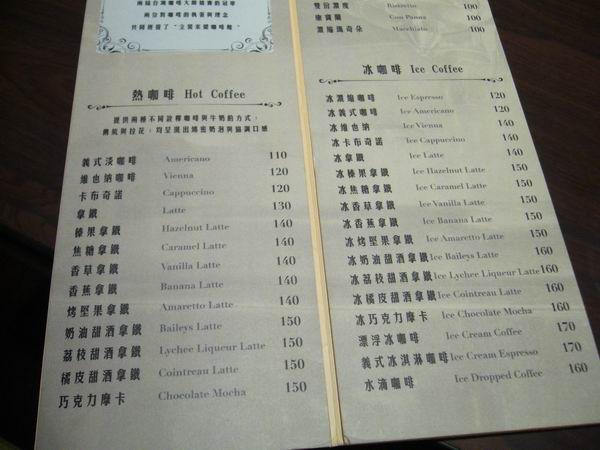 兩位對咖啡的執著與理念
共同經營了
雙倍濃度 Ristretto 100
康寶蘭 Con Panna 100
濃縮瑪奇朵 Macchiato 100
熱咖啡 Hot Coffee
提供兩種不同詮釋咖啡與牛奶的方式,
傳統與拉花,均呈現出綿密奶泡與協調口感
義式淡咖啡 Americano 110
維也納咖啡 Vienna 120
卡布奇諾 Cappuccino 120
拿鐵 Latte 130
榛果拿鐵 Hazelnut Latte 140
焦糖拿鐵 Caramel Latte 140
香草拿鐵 Vanilla Latte 140
香蕉拿鐵 Banana Latte 140
烤堅果拿鐵 Amaretto Latte 140
奶油甜酒拿鐵 Baileys Latte 150
荔枝甜酒拿鐵 Lychee Liqueur Latte 150
橘皮甜酒拿鐵 Cointreau Latte 150
巧克力摩卡 Chocolate Mocha 150
冰咖啡 Ice Coffee
冰濃縮咖啡 Ice Espresso 120
冰義式咖啡 Ice Americano 120
冰維也納 Ice Vienna 140
冰卡布奇諾 Ice Cappuccino 140
冰拿鐵 Ice Latte 140
冰榛果拿鐵 Ice Hazelnut Latte 150
冰焦糖拿鐵 Ice Caramel Latte 150
冰香草拿鐵 Ice Vanilla Latte 150
冰香蕉拿鐵 Ice Banana Latte 150
冰烤堅果拿鐵 Ice Amaretto Latte 150
冰奶油甜酒拿鐵 Ice Baileys Latte 160
冰荔枝甜酒拿鐵 Ice Lychee Liqueur Latte 160
冰橘皮甜酒拿鐵 Ice Cointreau Latte 160
冰巧克力摩卡 Ice Chocolate Mocha 160
漂浮冰咖啡 Ice Cream Coffee 170
義式冰淇淋咖啡 Ice Cream Espresso 170
水滴咖啡 Ice Dropped Coffee 160